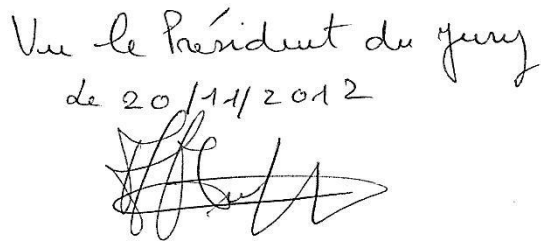 Vu le Président du Jury
le 20/11/2012